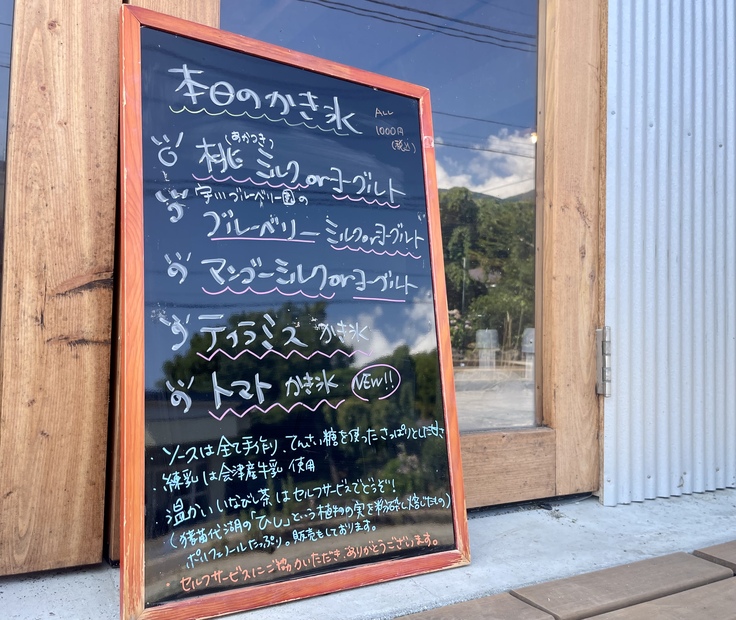 本日のかき氷
ALL
1000円
(税込)
(あかつき)
桃 ミルクorヨーグルト
宇川ブルーベリー園の
ブルーベリー ミルクorヨーグルト
マンゴーミルクorヨーグルト
ティラミスかき氷
トマトかき氷 NEW!!
・ソースは全て手作り、てんさい糖を使ったさっぱりとした甘さ
・練乳は会津産牛乳使用
・温かい いなびし茶はセルフサービスでどうぞ!
(猪苗代湖の「ひし」という植物の実を粉砕し焙じたもの)
ポリフェノールたっぷり。販売もしております。
・セルフサービスにご協力いただきありがとうございます。